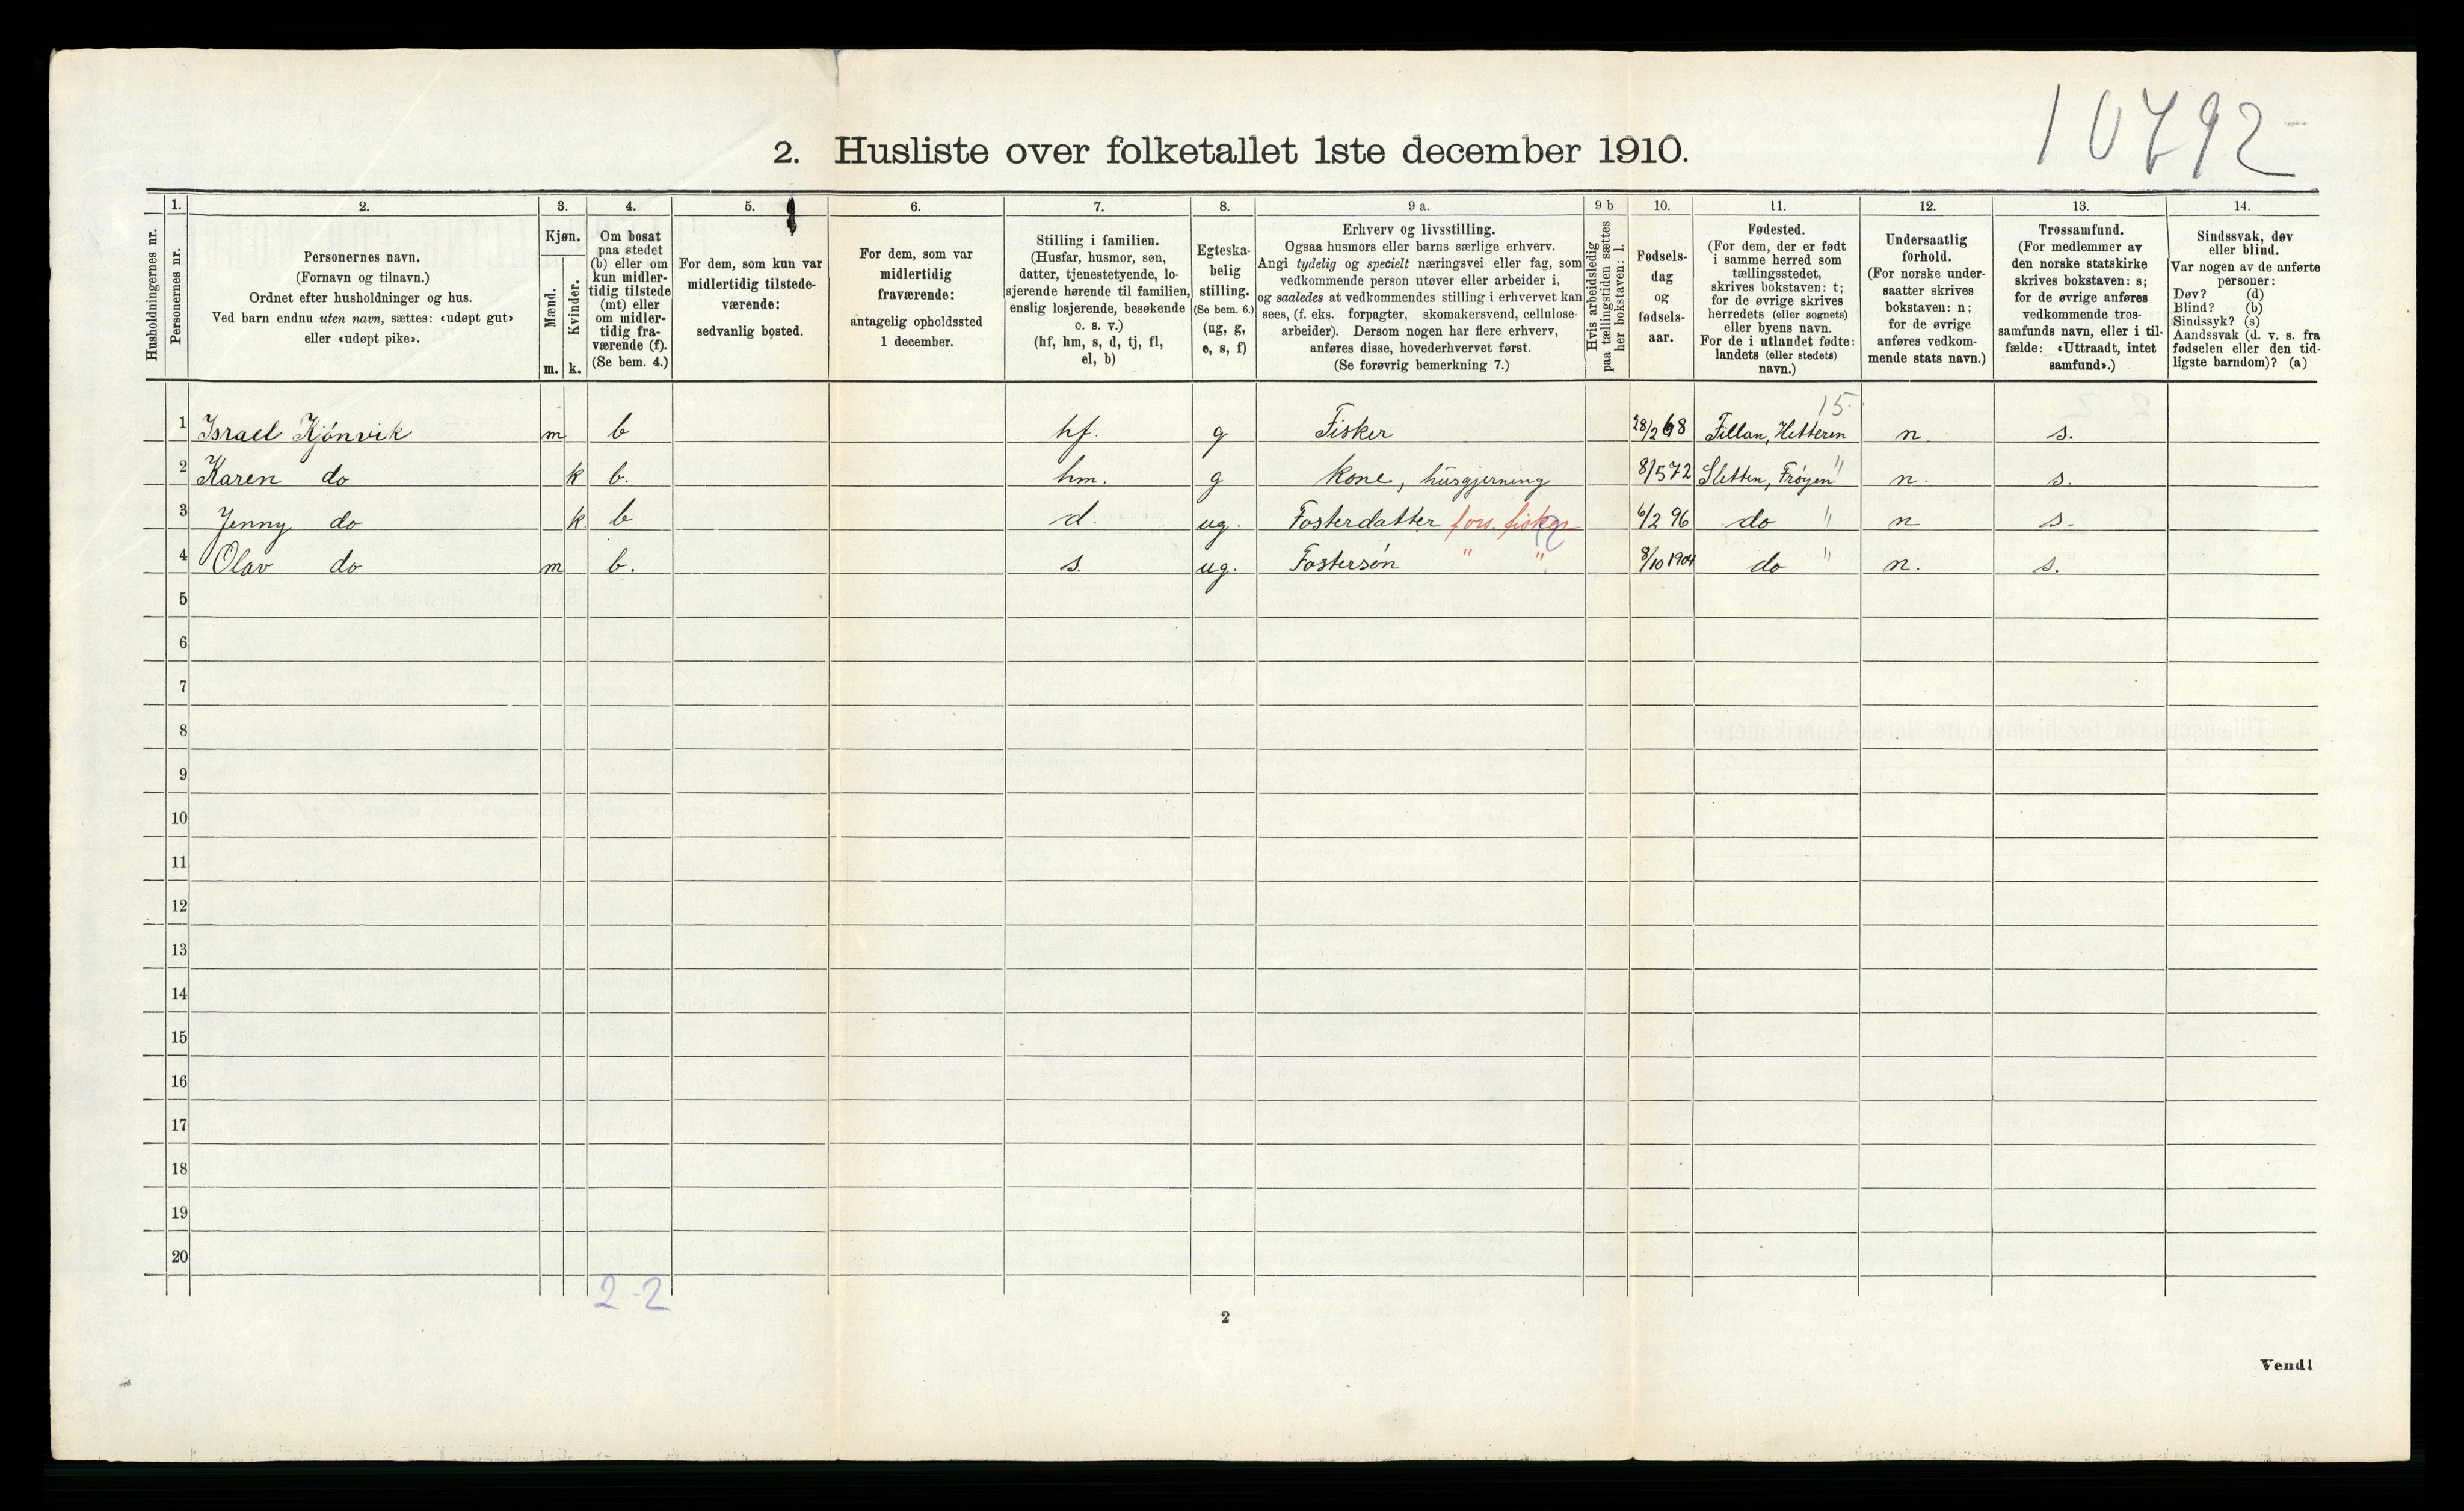 10792
2. Husliste over folketallet 1ste december 1910.
Husholdningernes nr.
1.
Personernes nr.
2.
Personernes navn.
(Fornavn og tilnavn.)
Ordnet efter husholdninger og hus.
Ved barn endnu uten navn, sættes: «udøpt gut»
eller «udøpt pike».
3.
Kjøn.
Mænd.
Kvinder.
m. k.
4.
Om bosat
paa stedet
(b) eller om
kun midler-
tidig tilstede
(mt) eller
om midler-
tidig fra-
værende (f).
(Se bem. 4.)
5.
For dem, som kun var
midlertidig tilstede-
værende:
sedvanlig bosted.
6.
For dem, som var
midlertidig
fraværende:
antagelig opholdssted
1 december.
7.
Stilling i familien.
(Husfar, husmor, søn,
datter, tjenestetyende, lo-
sjerende hørende til familien,
enslig losjerende, besøkende
o. s. v.)
(hf, hm, s, d, tj, fl,
el, b)
8.
Egteska-
belig
stilling.
(Se bem. 6.)
(ug, g,
e, s, f)
9 a.
Erhverv og livsstilling.
Ogsaa husmors eller barns særlige erhverv.
Angi tydelig og specielt næringsvei eller fag, som
vedkommende person utøver eller arbeider i,
og saaledes at vedkommendes stilling i erhvervet kan
sees, (f. eks. forpagter, skomakersvend, cellulose-
arbeider). Dersom nogen har flere erhverv,
anføres disse, hovederhvervet først.
(Se forøvrig bemerkning 7.)
9 b
Hvis arbeidsledig
paa tællingstiden sættes
her bokstaven: l.
10.
Fødsels-
dag
og
fødsels-
aar.
11.
Fødested.
(For dem, der er født
i samme herred som
tællingsstedet,
skrives bokstaven: t;
for de øvrige skrives
herredets (eller sognets)
eller byens navn.
For de i utlandet fødte:
landets (eller stedets)
navn.)
12.
Undersaatlig
forhold.
(For norske under-
saatter skrives
bokstaven: n;
for de øvrige
anføres vedkom-
mende stats navn.)
13.
Trossamfund.
(For medlemmer av
den norske statskirke
skrives bokstaven: s;
for de øvrige anføres
vedkommende tros-
samfunds navn, eller i til-
fælde: «Uttraadt, intet
samfund».)
14.
Sindssvak, døv
eller blind.
Var nogen av de anførte
personer:
Døv? (d)
Blind? (b)
Sindssyk? (s)
Aandssvak (d. v. s. fra
fødselen eller den tid-
ligste barndom)? (a)
15.
1 Israel Kjønvik m b hf. g Fisker 28/2 68 Fillan, Hitteren n. s.
2 Karen do k b. hm. g kone, husgjerning 8/5 72 Sletten, Frøyen " n. s.
3 Jenny do k b d. ug. Fosterdatter fors. fisker 6/2 96 do " n s.
4 Olav do m b. s. ug. Fostersøn " " 8/10 1904 do " n. s.
5
6
7
8
9
10
11
12
13
14
15
16
17
18
19
20
2-2
2
Vend!